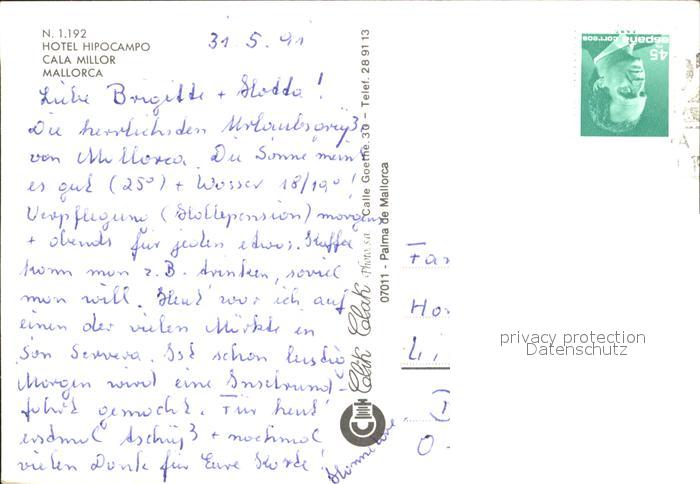 N. 1.192
HOTEL HIPOCAMPO
CALA MILLOR
MALLORCA
31.5.91
Liebe Brigitte + Hadda!
Die herrlichsden Urlaubsgrüße
von Mallorca. Die Sonne meint
es gut (25°) + Wasser 18/19°!
Verpflegung (Hallepension) morgens
+ abends für jeden etwas. Kaffee
kann man z.B. trinken, soviel
man will. Heut' war ich auf
einen der vielen Märkte in
Son Servera. Ist schon lustig
Morgen wird eine Inselrund-
fahrt gemacht. Für heut'
erstmal tschüß + nochmal
vielen Dank für Eure Karte!
Hannelore
Clik Clak Photo, s.a. Calle Goethe, 30 - Telef. 28 91 13
07011 - Palma de Mallorca
españa correos
45
Fam
Ho
Li
D
O-
privacy protection
Datenschutz